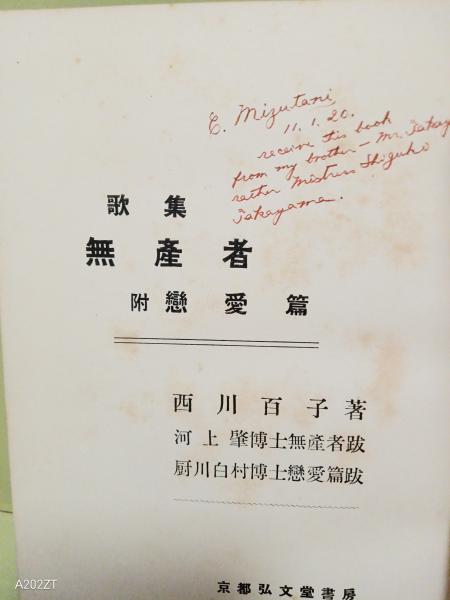 E. Mizutani
11.1.20.
receive this book
from my brother – Mr. Takay
rather Mistress Shiguko
Takayama.
歌集
無產者
附戀愛篇
西川百子著
河上肇博士無產者跋
厨川白村博士戀愛篇跋
京都弘文堂書房
A202ZT